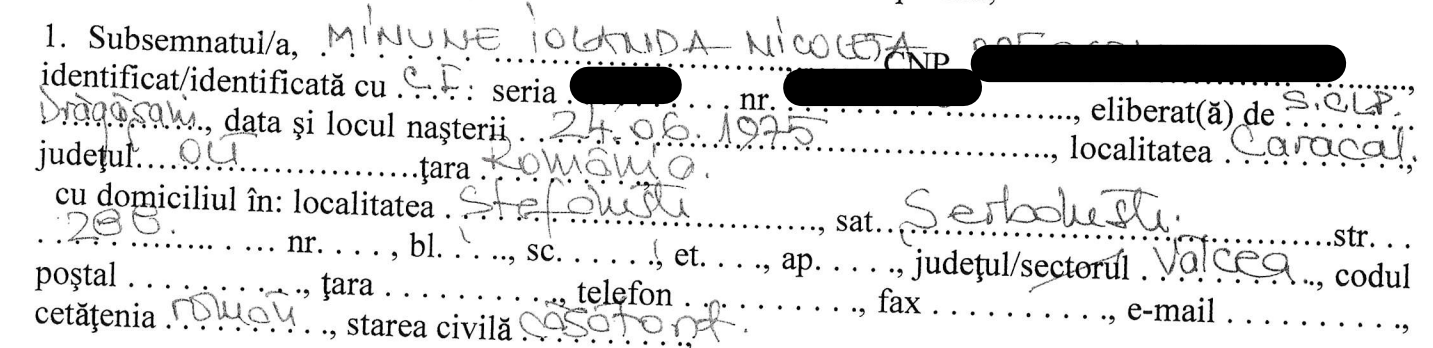 1. Subsemnatul/a, MINUNE IOLANDA NICOLETA CNP
identificat/identificată cu C.I. : seria nr. , eliberat(ă) de S.C.L.P.
Drăgășani, data și locul nașterii 24.06.1975, localitatea Caracal,
județul OLT țara România.
cu domiciliul în: localitatea Ștefănești, sat Șerbănești. str.
288. nr. , bl. , sc. , et. , ap. , județul/sectorul Vâlcea, codul
poștal , țara , telefon , fax , e-mail ,
cetățenia română, starea civilă căsătorit.